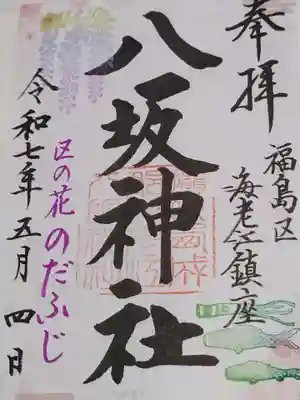 奉拝
福島区
海老江鎮座
八坂神社
区の花 のだふじ
令和七年五月四日